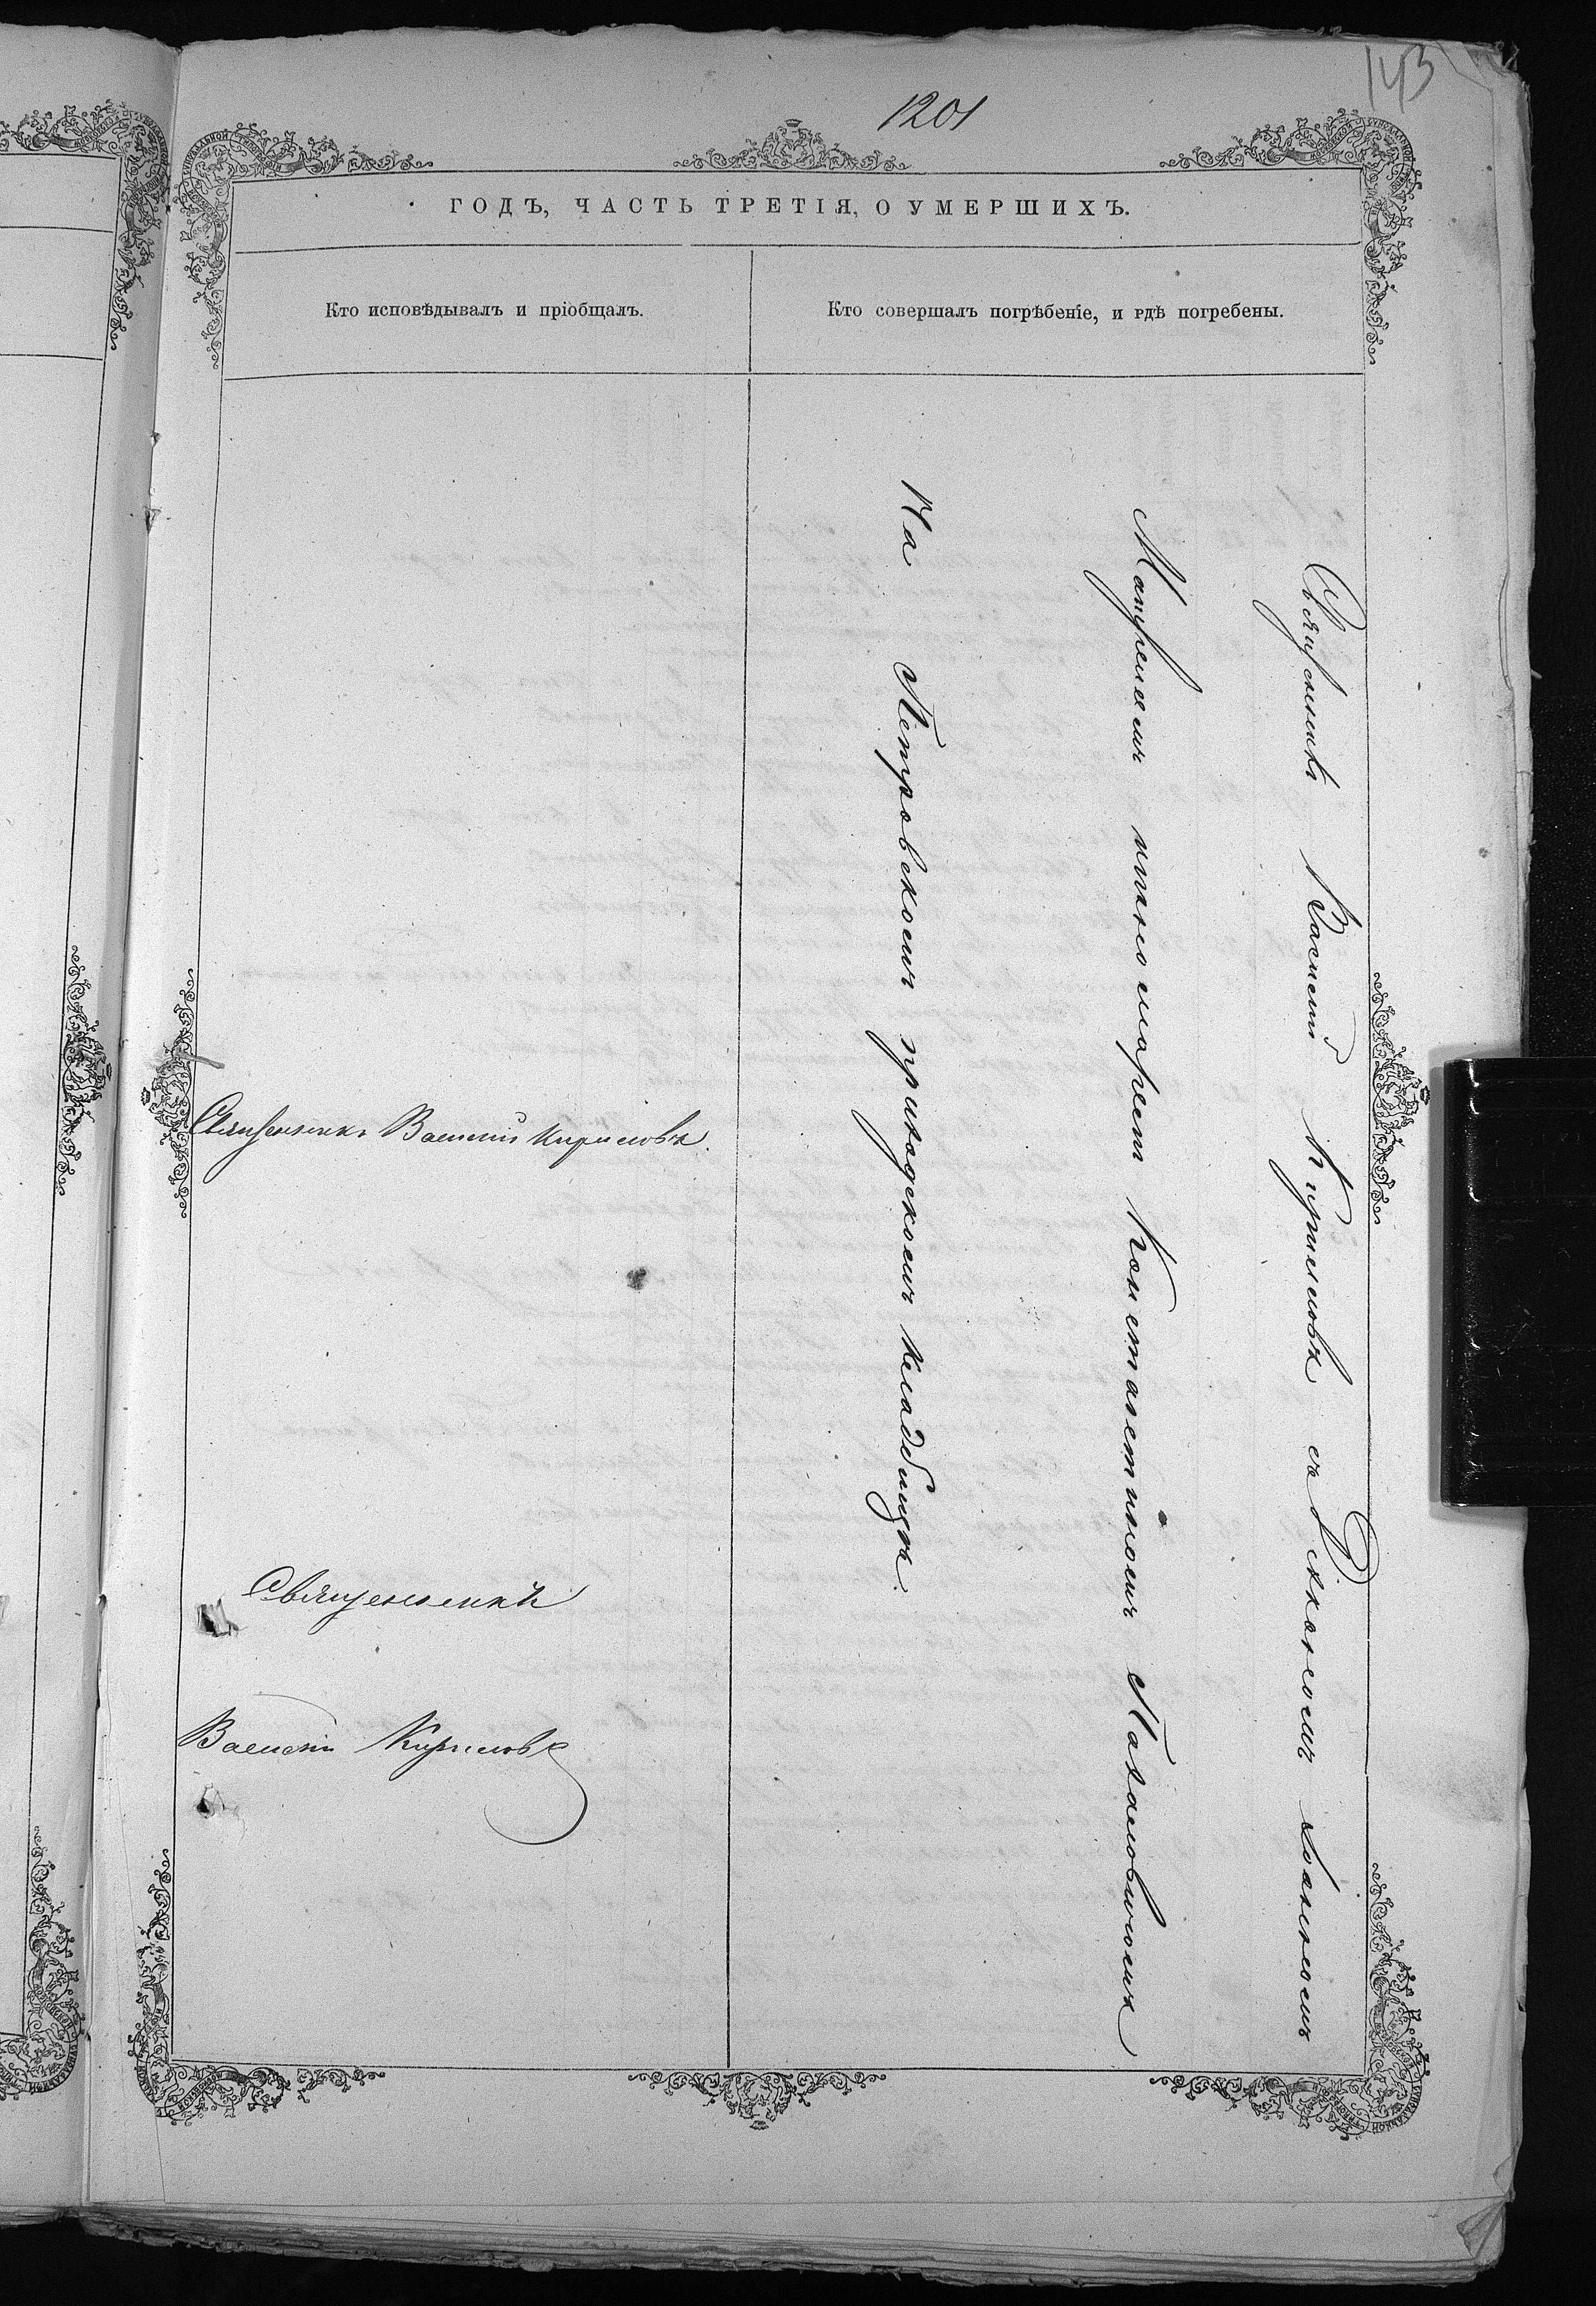 143
1201
ГОДЪ, ЧАСТЬ ТРЕТІЯ, О УМЕРШИХЪ.
Кто исповѣдывалъ и пріобщалъ.
Кто совершалъ погрѣбеніе, и гдѣ погребены.
Священникъ Василій Кириловъ
Священникъ
Василій Кириловъ
Священникъ Василій Кириловъ съ Діакономъ Іоанномъ
и псаломщикомъ Константиномъ
На Петровскомъ приходскомъ кладбищѣ.